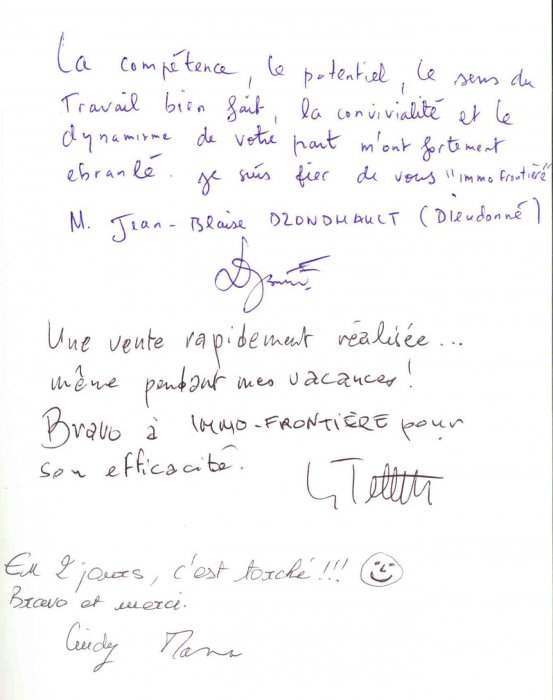 La compétence, le potentiel, le sens du
Travail bien fait, la convivialité et le
dynamisme de votre part m'ont fortement
ebranlé. je suis fier de vous "immo Frontière"
M. Jean-Blaise DZONDHAULT (Dieudonné)
Une vente rapidement réalisée...
même pendant mes vacances!
Bravo à IMMO-FRONTIÈRE pour
son efficacité.
En 2 jours, c'est torché!!!
Bravo et merci.
Cindy